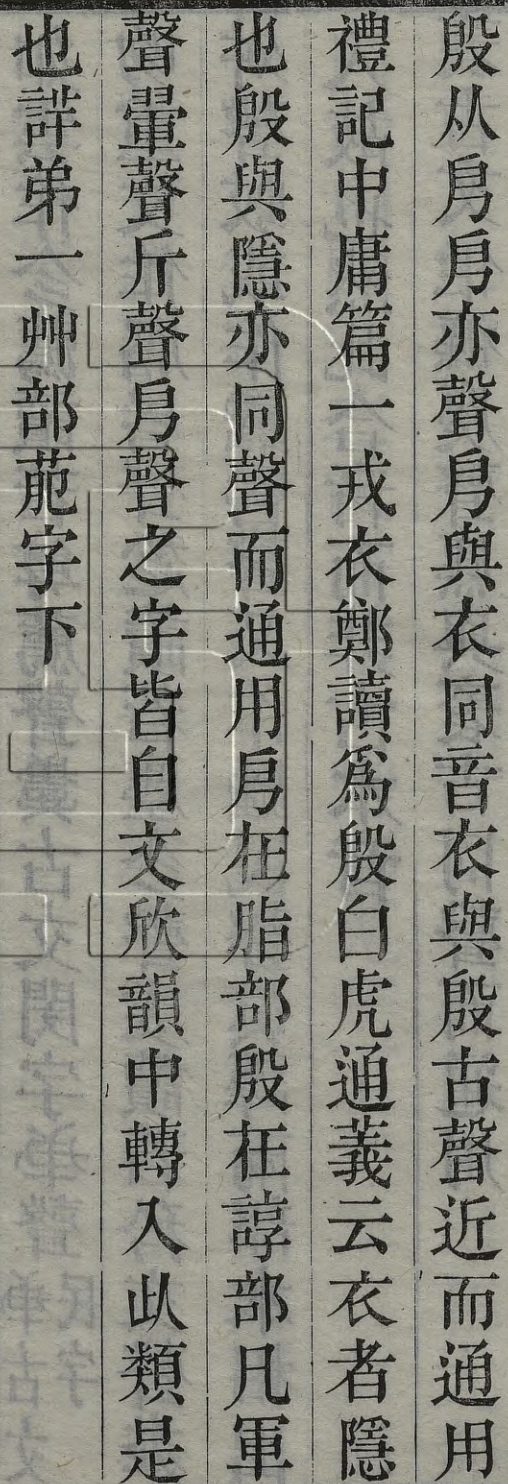 殷从㐆㐆亦聲㐆與衣同音衣與殷古聲近而通用
禮記中庸篇一戎衣鄭讀爲殷白虎通義云衣者隱
也殷與隱亦同聲而通用㐆在脂部殷在諄部凡軍
聲暈聲斤聲㐆聲之字皆自文欣韻中轉入此類是
也詳弟一艸部葩字下